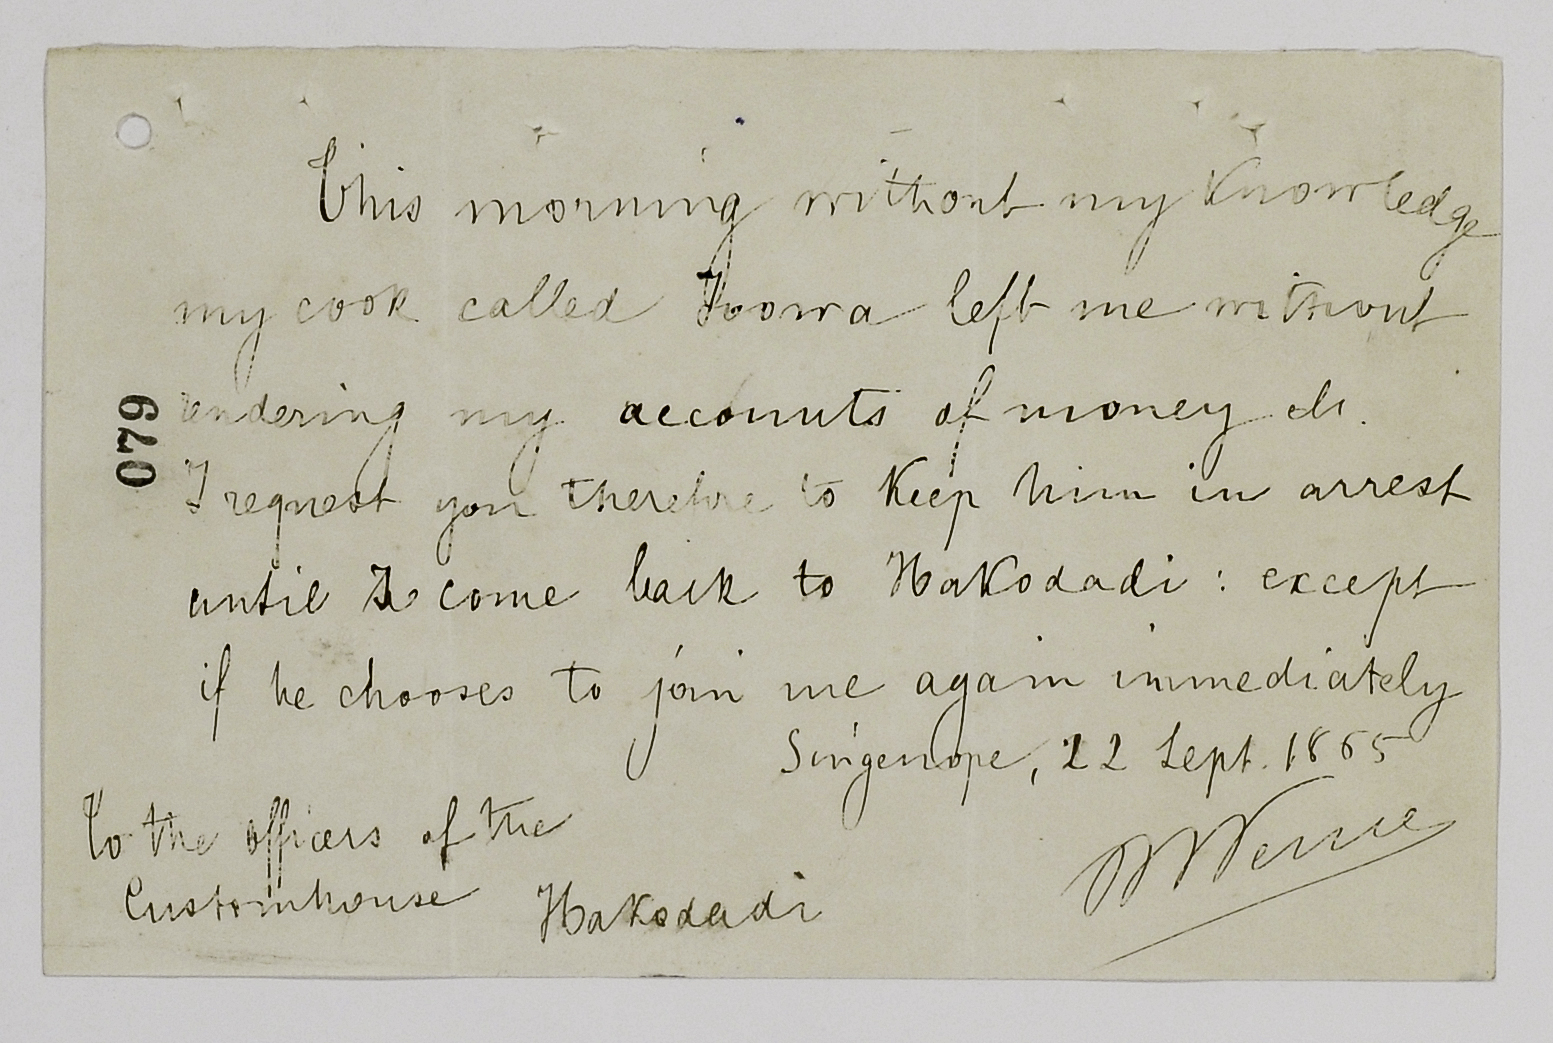 This morning without my Knowledge
my cook called Toowa left me without
rendering my accounts of money &c.
I request you therefore to Keep him in arrest
until I come back to HaKodadi: except
if he chooses to join me again immediately
Singenope, 22 Sept. 1865
To the officers of the
Customhouse HaKodadi
079